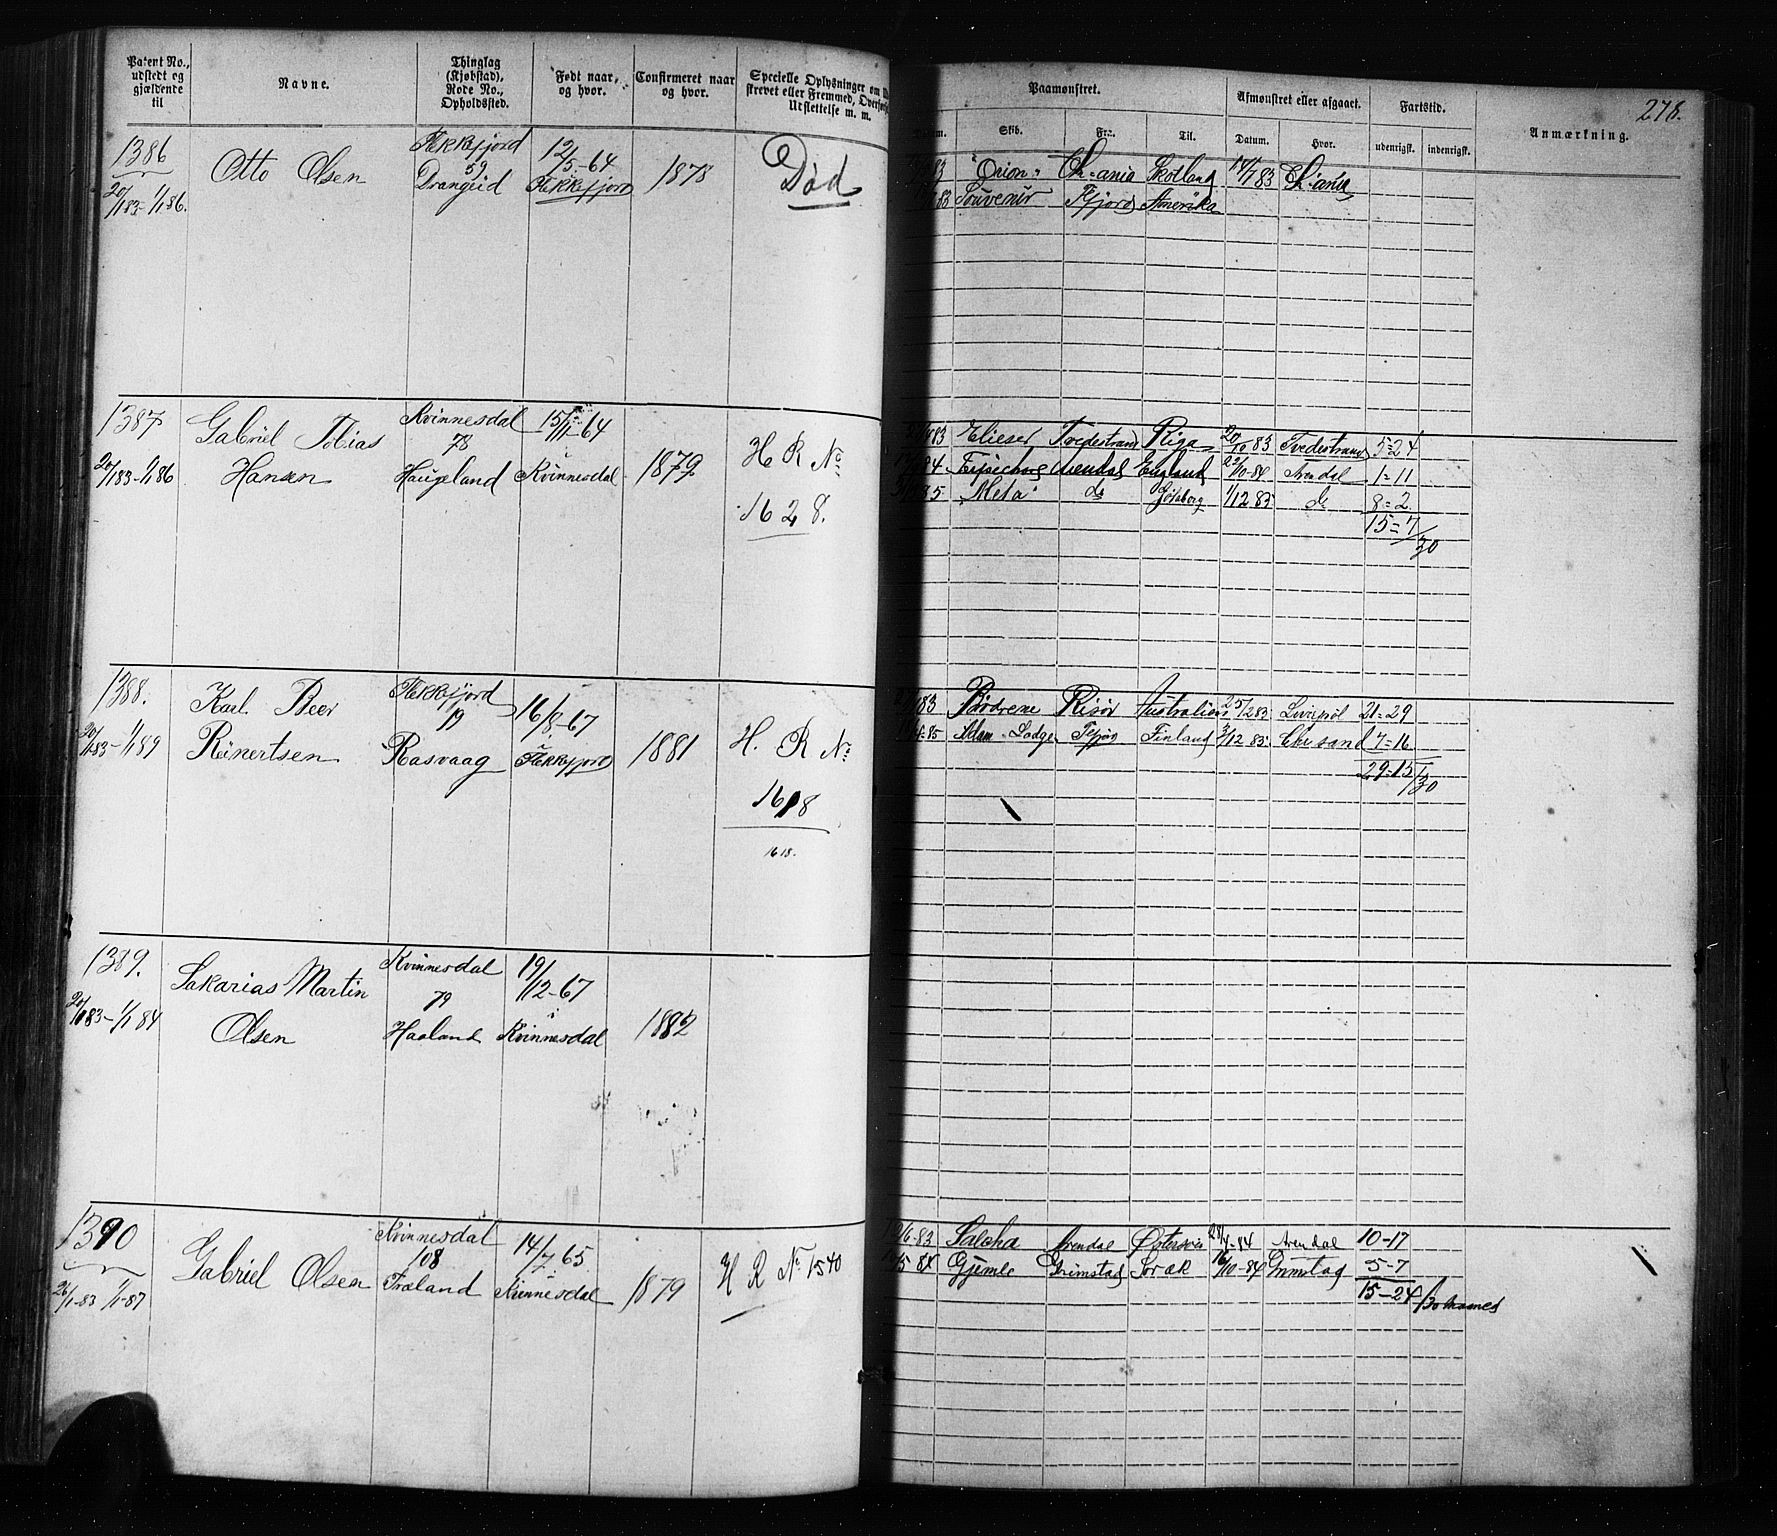 Patent No., udstedt og gjældende til
Navne.
Thinglag (Kjøbstad), Rode No., Opholdssted.
Født naar, og hvor.
Confirmeret naar og hvor.
Specielle Oplysninger om
strevet eller Fremmed,
Udslettelse m. m.
Paamønstret.
Afmønstret eller afgaaet.
Fartstid.
278.
Skib.
Fra.
Til.
Datum.
Hvor.
udenrigsk.
indenrigsk.
Anmærkning.
1386
Otto Olsen
Flekkefjord
59
Drangeid
12/5-64
Flekkefjord
1878
Død
20/1 83-1/1 86.
83 "Orion" Ch-ania Skotland 14/7 83 Ch-ania
83 Souvenir Ffjord Amerika
1387
Gabriel Tobias
Hansen
Kvinnesdal
78
Haugeland
15/11-64
Kvinnesdal
1879
H R No
1628.
20/1 83-1/1 86
83 Elieser Tvedestrand Riga 20/10 83 Tvedestrand 5=24
84 Arendal England 22/10-84 Arendal 1=11
85 "Meta" do Gøteborg 1/12 85 do 8=2
15=7/30
1388.
Karl Beer
Reinertsen
Flekkefjord
19
Rasvaag
16/8-67
Flekkefjord
1881
H. R No
1618
1618.
20/1 83-1/1 89
83 Brødrene Risør Australien 25/2 83 Liverpol 21=29
85 Adm. Ffjord Finland 3/12 85 Chr sand 7=16
29=15/30
1389.
Sakarias Martin
Olsen
Kvinnesdal
79
Haaland
19/12-67
Kvinnesdal
1882
20/1 83-1/1 84
1390
Gabriel Olsen
Kvinnesdal
108
Træland
14/7-65
Kvinnesdal
1879
H R No 1540
26/1-83 1/1-87
6-83 Arendal 84 Arendal 10-17
5 84 Gjemle Grimstad 16/10-84 5-7
15-24/30